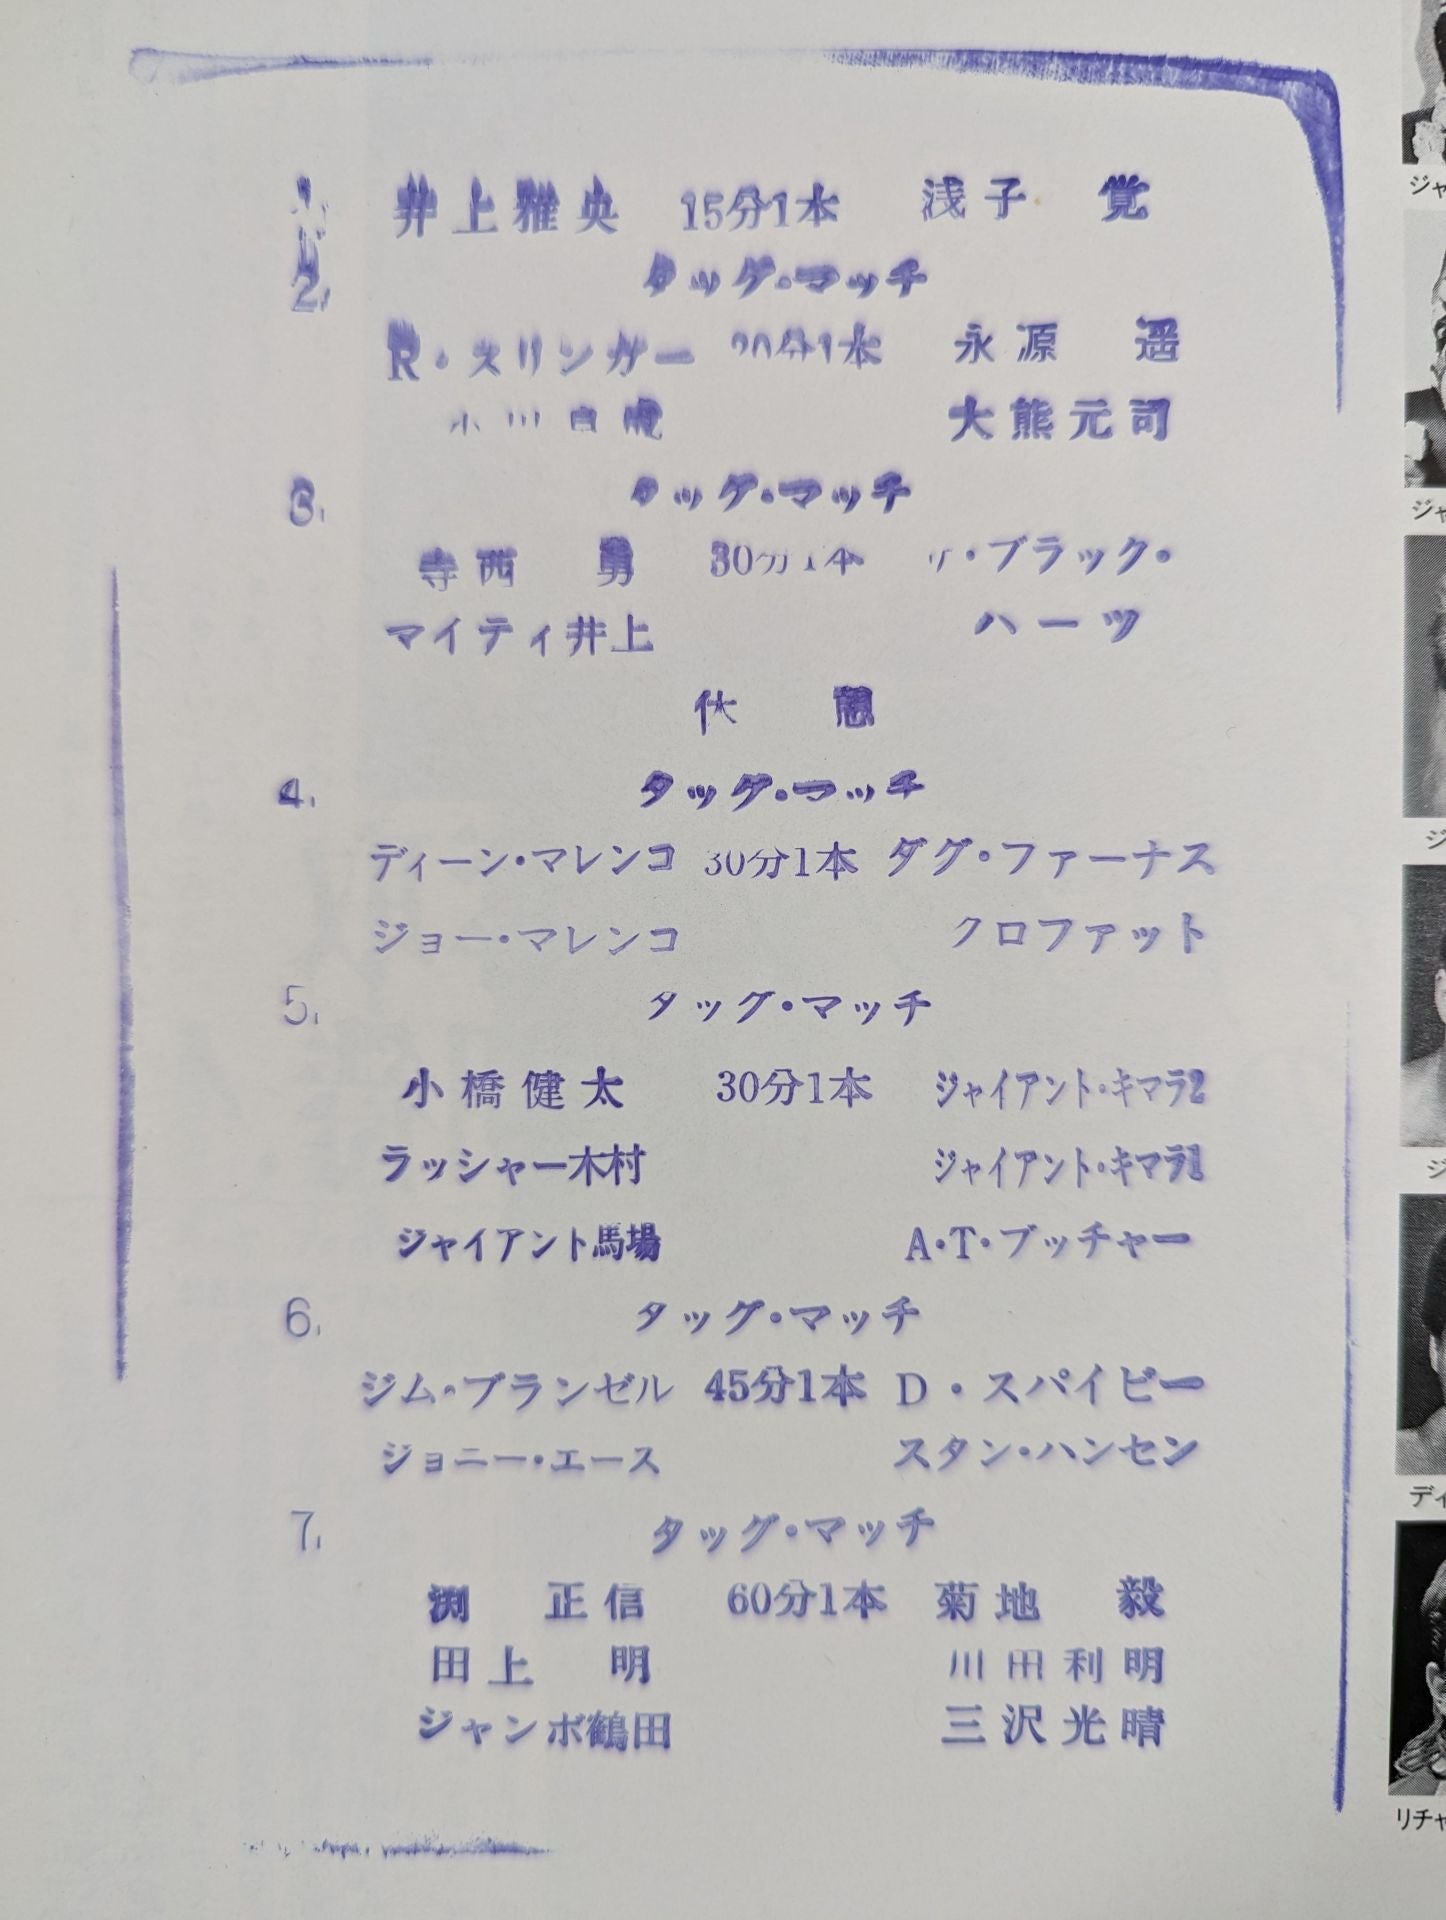 井上雅央 15分1本 浅子 覚
2. タッグ・マッチ
R・スリンガー 20分1本 永源 遥
大熊元司
3. タッグ・マッチ
寺西 勇 30分1本 ザ・ブラック・
マイティ井上 ハーツ
休 憩
4. タッグ・マッチ
ディーン・マレンコ 30分1本 ダグ・ファーナス
ジョー・マレンコ クロファット
5. タッグ・マッチ
小橋健太 30分1本 ジャイアント・キマラ2
ラッシャー木村 ジャイアント・キマラ1
ジャイアント馬場 A・T・ブッチャー
6. タッグ・マッチ
ジム・ブランゼル 45分1本 D・スパイビー
ジョニー・エース スタン・ハンセン
7. タッグ・マッチ
渕 正信 60分1本 菊地 毅
田上 明 川田利明
ジャンボ鶴田 三沢光晴
ジャ
ジャ
ジ
ジ
ディ
リチャ